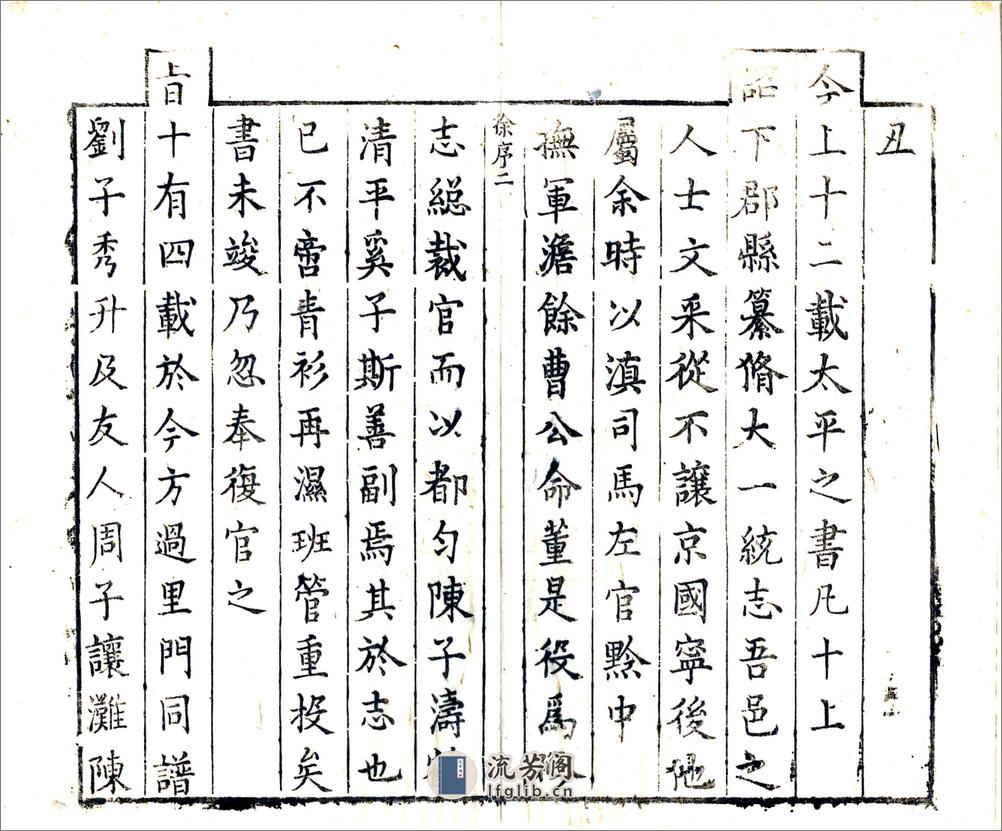 丑
今上十二載太平之書凡十上
詔下郡縣纂脩大一統志吾邑之
人士文采從不讓京國寧後他
屬余時以滇司馬左官黔中
撫軍澹餘曹公命董是役爲
徐序二
志緫裁官而以都勻陳子濤
清平奚子斯善副焉其於志也
已不啻青衫再濕班管重投矣
書未竣乃忽奉復官之
旨十有四載於今方過里門同譜
劉子秀升及友人周子讓灘陳
流芳阁
lfglib.cn